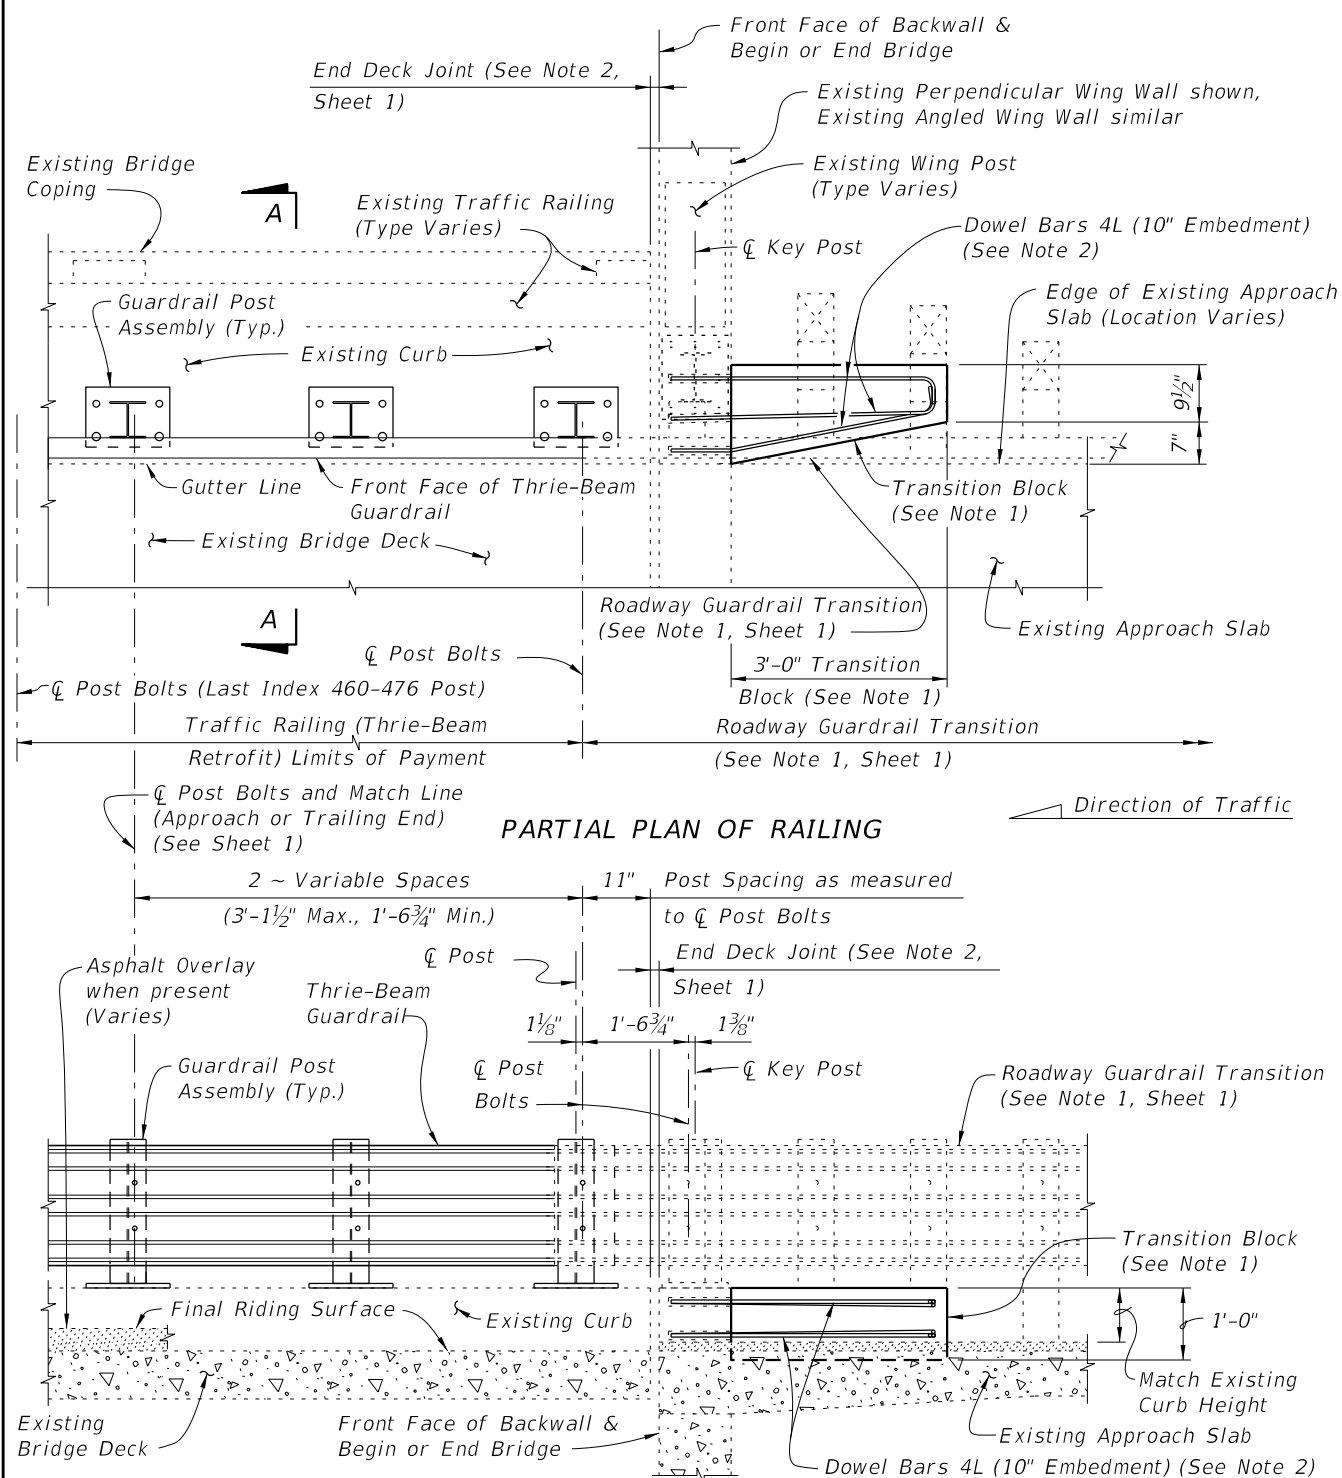 Front Face of Backwall &
Begin or End Bridge
End Deck Joint (See Note 2,
Sheet 1)
Existing Perpendicular Wing Wall shown,
Existing Angled Wing Wall similar
Existing Bridge
Coping
A
Existing Traffic Railing
(Type Varies)
Existing Wing Post
(Type Varies)
Dowel Bars 4L (10" Embedment)
(See Note 2)
℄ Key Post
Guardrail Post
Assembly (Typ.)
Edge of Existing Approach
Slab (Location Varies)
Existing Curb
9½"
7"
Gutter Line
Front Face of Thrie-Beam
Guardrail
Transition Block
(See Note 1)
Existing Bridge Deck
A
Roadway Guardrail Transition
(See Note 1, Sheet 1)
Existing Approach Slab
℄ Post Bolts
3'-0" Transition
Block (See Note 1)
℄ Post Bolts (Last Index 460-476 Post)
Traffic Railing (Thrie-Beam
Retrofit) Limits of Payment
Roadway Guardrail Transition
(See Note 1, Sheet 1)
℄ Post Bolts and Match Line
(Approach or Trailing End)
(See Sheet 1)
Direction of Traffic
PARTIAL PLAN OF RAILING
2 ~ Variable Spaces
(3'-1½" Max., 1'-6¾" Min.)
11"
Post Spacing as measured
to ℄ Post Bolts
℄ Post
End Deck Joint (See Note 2,
Sheet 1)
Asphalt Overlay
when present
(Varies)
Thrie-Beam
Guardrail
1⅛"
1'-6¾"
1⅜"
Guardrail Post
Assembly (Typ.)
℄ Post
Bolts
℄ Key Post
Roadway Guardrail Transition
(See Note 1, Sheet 1)
Transition Block
(See Note 1)
Final Riding Surface
Existing Curb
1'-0"
Match Existing
Curb Height
Existing
Bridge Deck
Front Face of Backwall &
Begin or End Bridge
Existing Approach Slab
Dowel Bars 4L (10" Embedment) (See Note 2)